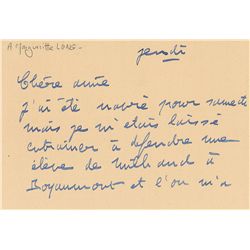 A Marguerite LONG -
jeudi
Chère amie
J'ai été navré pour samedi
mais je m'étais laissé
entraîner à défendre une
élève de Milhaud à
Royaumont et l'on m'a